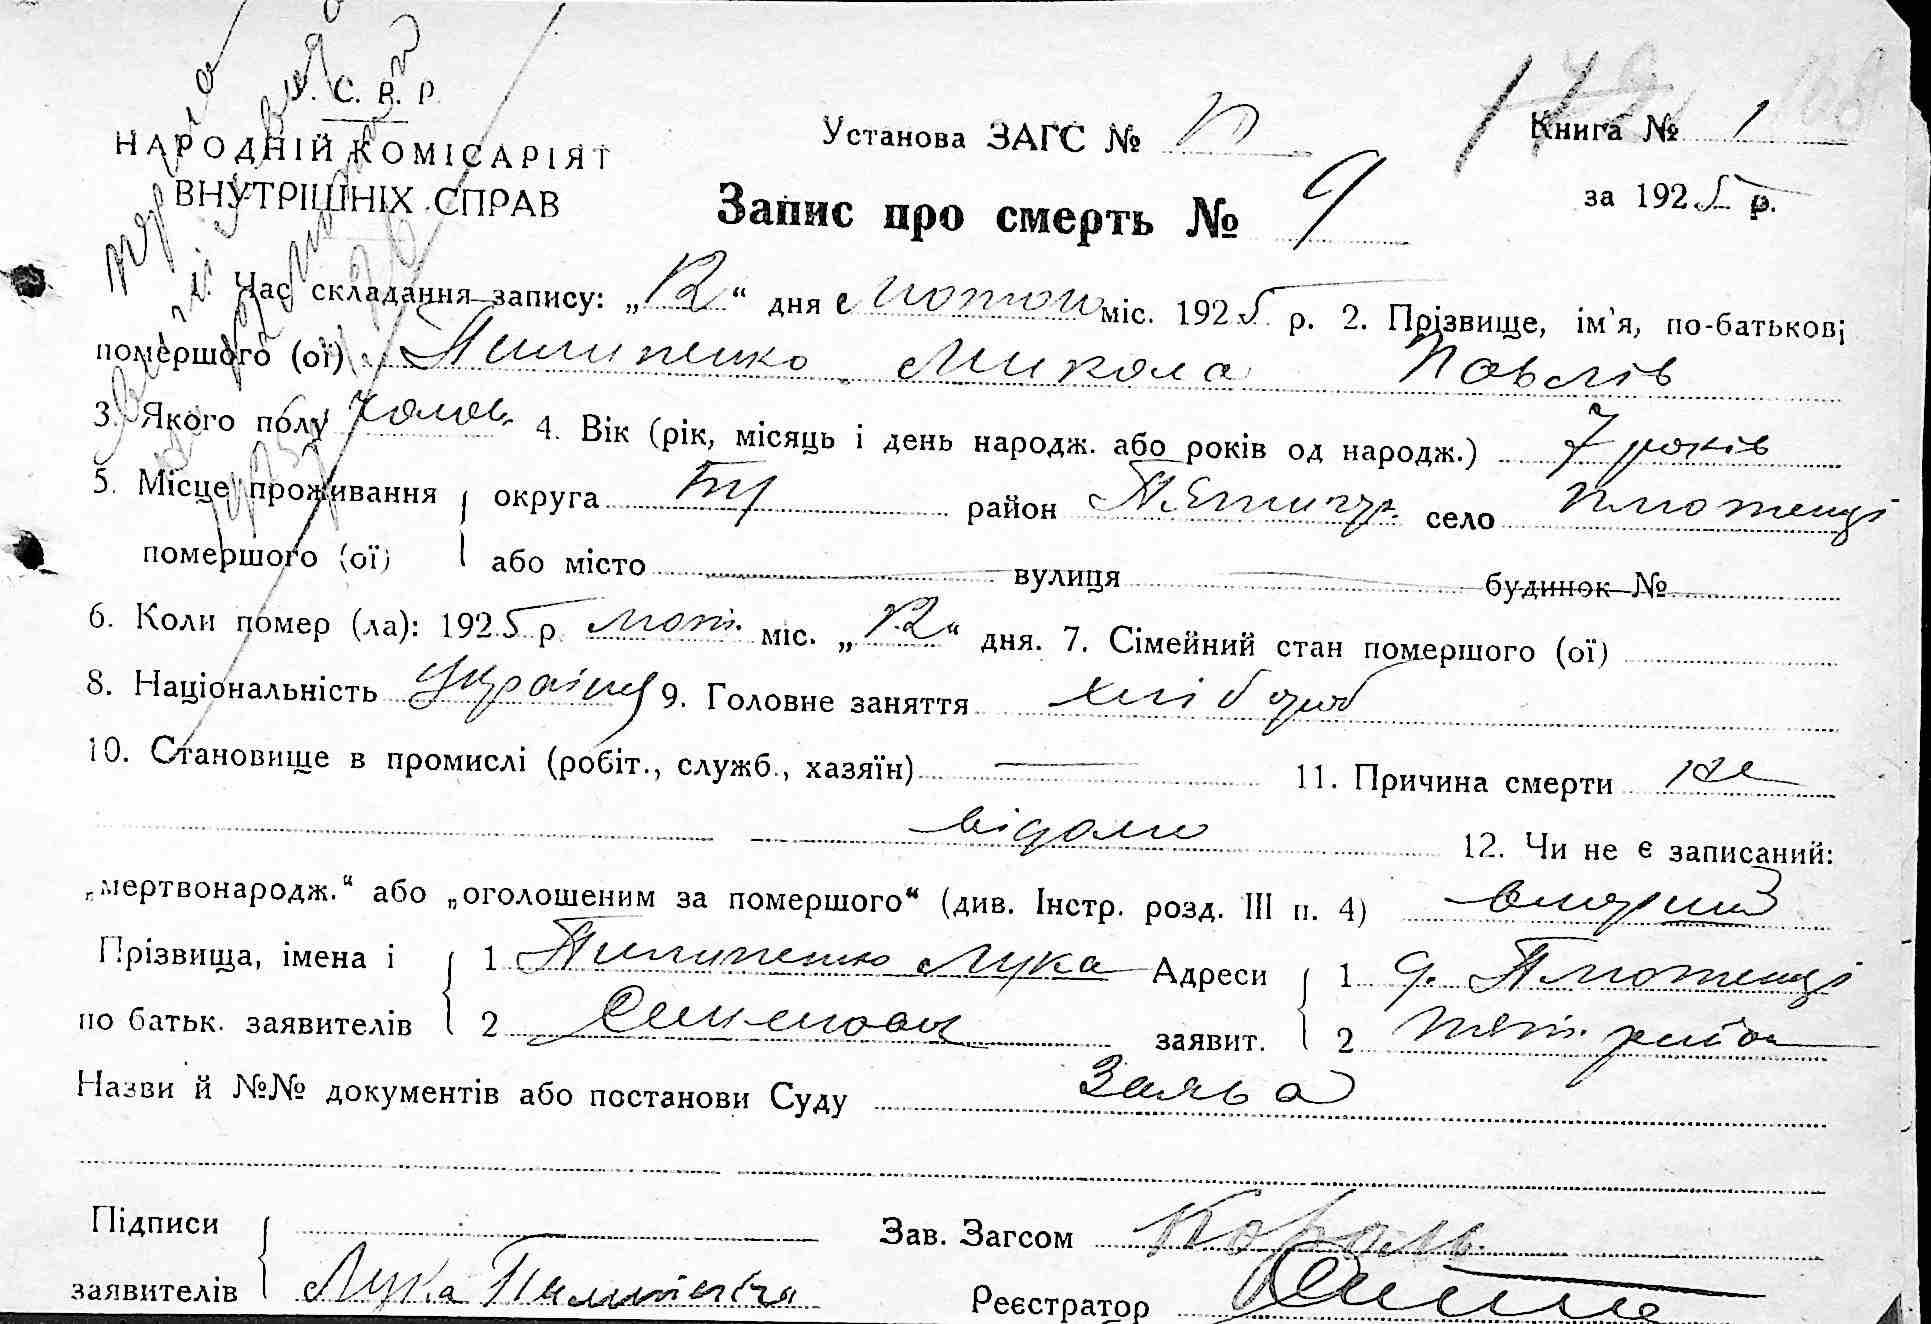 У. С. Р. Р.
НАРОДНІЙ КОМІСАРІЯТ
ВНУТРІШНІХ СПРАВ
Установа ЗАГС №
Книга № 1
за 1925 р.
Запис про смерть № 9
1. Час складання запису: „12“ дня лютого міс. 1925 р. 2. Прізвище, ім'я, по-батькові
помершого (ої) Пилипенко Микола Павлів
3. Якого полу чолов. 4. Вік (рік, місяць і день народж. або років од народж.) 7 років
5. Місце проживання округа район село Плютенці
помершого (ої) або місто вулиця будинок №
6. Коли помер (ла): 1925 р. лют. міс. „12“ дня. 7. Сімейний стан помершого (ої)
8. Національність Українец 9. Головне заняття хлібороб
10. Становище в промислі (робіт., служб., хазяїн) — 11. Причина смерти не
відомо 12. Чи не є записаний:
„мертвонародж.“ або „оголошеним за помершого“ (див. Інстр. розд. III п. 4) вмерший
Прізвища, імена і 1 Пилипенко Лука Адреси 1 Плютенці
по батьк. заявителів 2 заявит. 2 район
Назви й №№ документів або постанови Суду Заява
Підписи Зав. Загсом Король
заявителів Лука Пилипенко Реєстратор